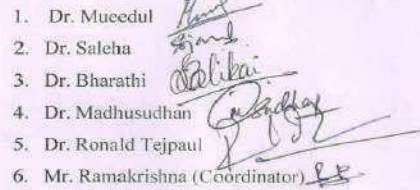 1. Dr. Mueedul
2. Dr. Saleha
3. Dr. Bharathi
4. Dr. Madhusudhan
5. Dr. Ronald Tejpaul
6. Mr. Ramakrishna (Coordinator)